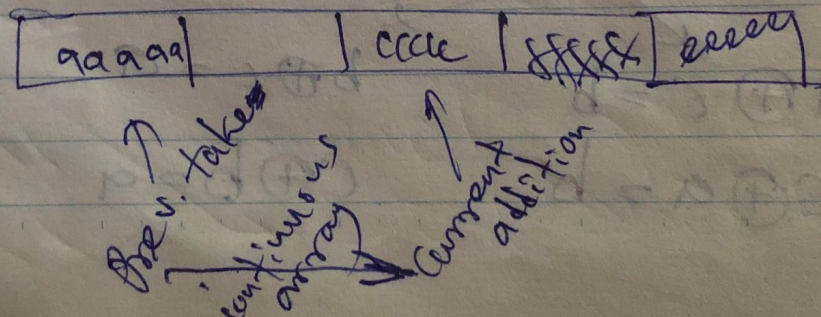 aaaaa
cccc
fffff
eeeee
Prev. take
continuous
array
Current
addition